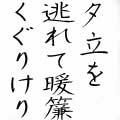 夕立を
逃れて暖簾
くぐりけり